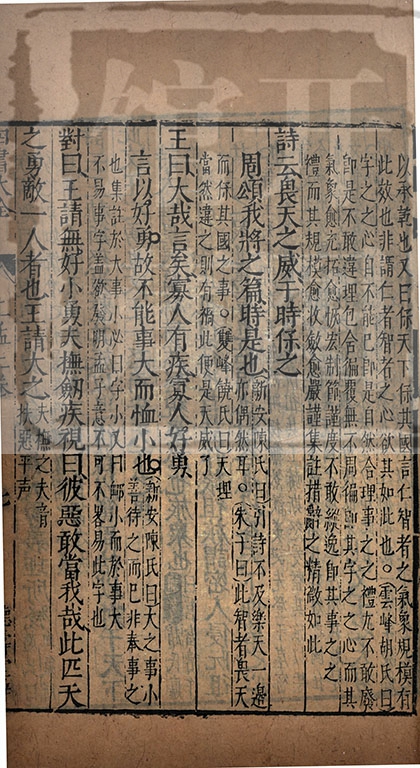 以承乾也又曰保天下保其國言仁智者之氣象規模有
此效也非謂仁者智者之心欲其如此也○雲峰胡氏曰
字之之心自不能已即是自然合理事之之禮尤不敢廢
即是不敢違理包含徧覆無不周徧即其字之之心而其
氣象愈充拓愈恢宏制節謹度不敢縱逸即其事之之
禮而其規模愈收斂愈嚴謹集註措辭之精故如此
詩云畏天之威于時保之
周頌我將之篇時是也
新安陳氏曰引詩不及樂天一邊
亦偶然耳○朱子曰此智者畏天
而保其國之事○雙峰饒氏曰天理
當然違之則有禍此便是天威了
王曰大哉言矣寡人有疾寡人好勇
言以好勇故不能事大而恤小也
新安陳氏曰大之事小
善待之而已非奉事之
也集註於大事小必曰字小又曰䘏小而於事大
不易事字蓋欲發明孟子意不可不畧易此字也
對曰王請無好小勇夫撫劍疾視曰彼惡敢當我哉此匹夫
之勇敵一人者也王請大之
夫撫之夫音
扶惡平声